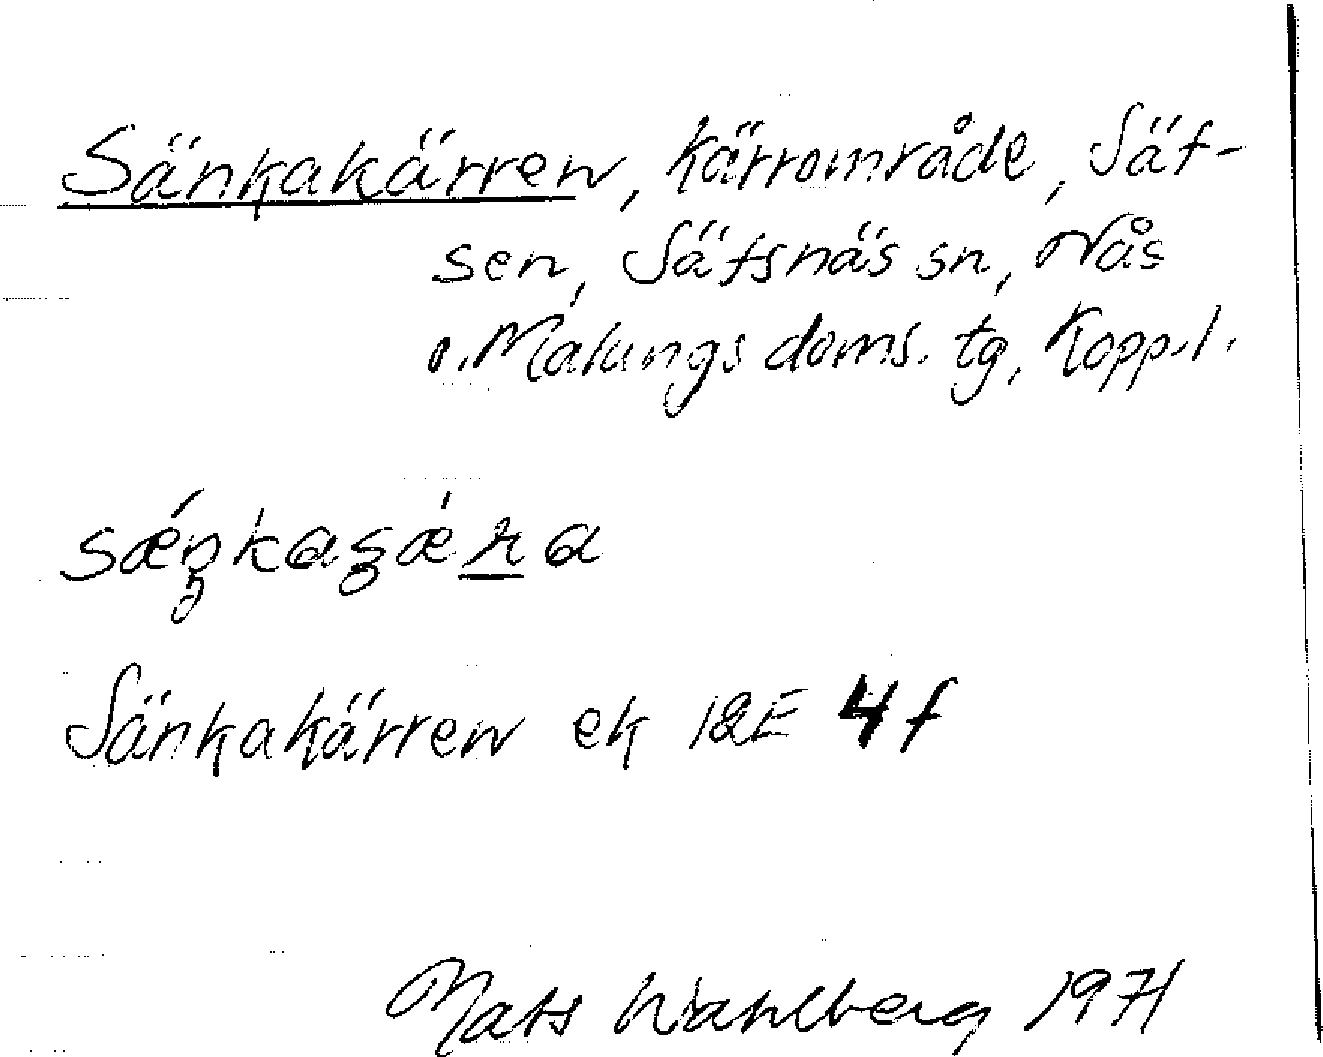 Sänkakärren, kärrområde, Säf-
sen, Säfsnäs sn, Nås
o. Malungs doms. tg, Kopp. l.
Sänkakärren ek 12E 4f
Mats Wahlberg 1971